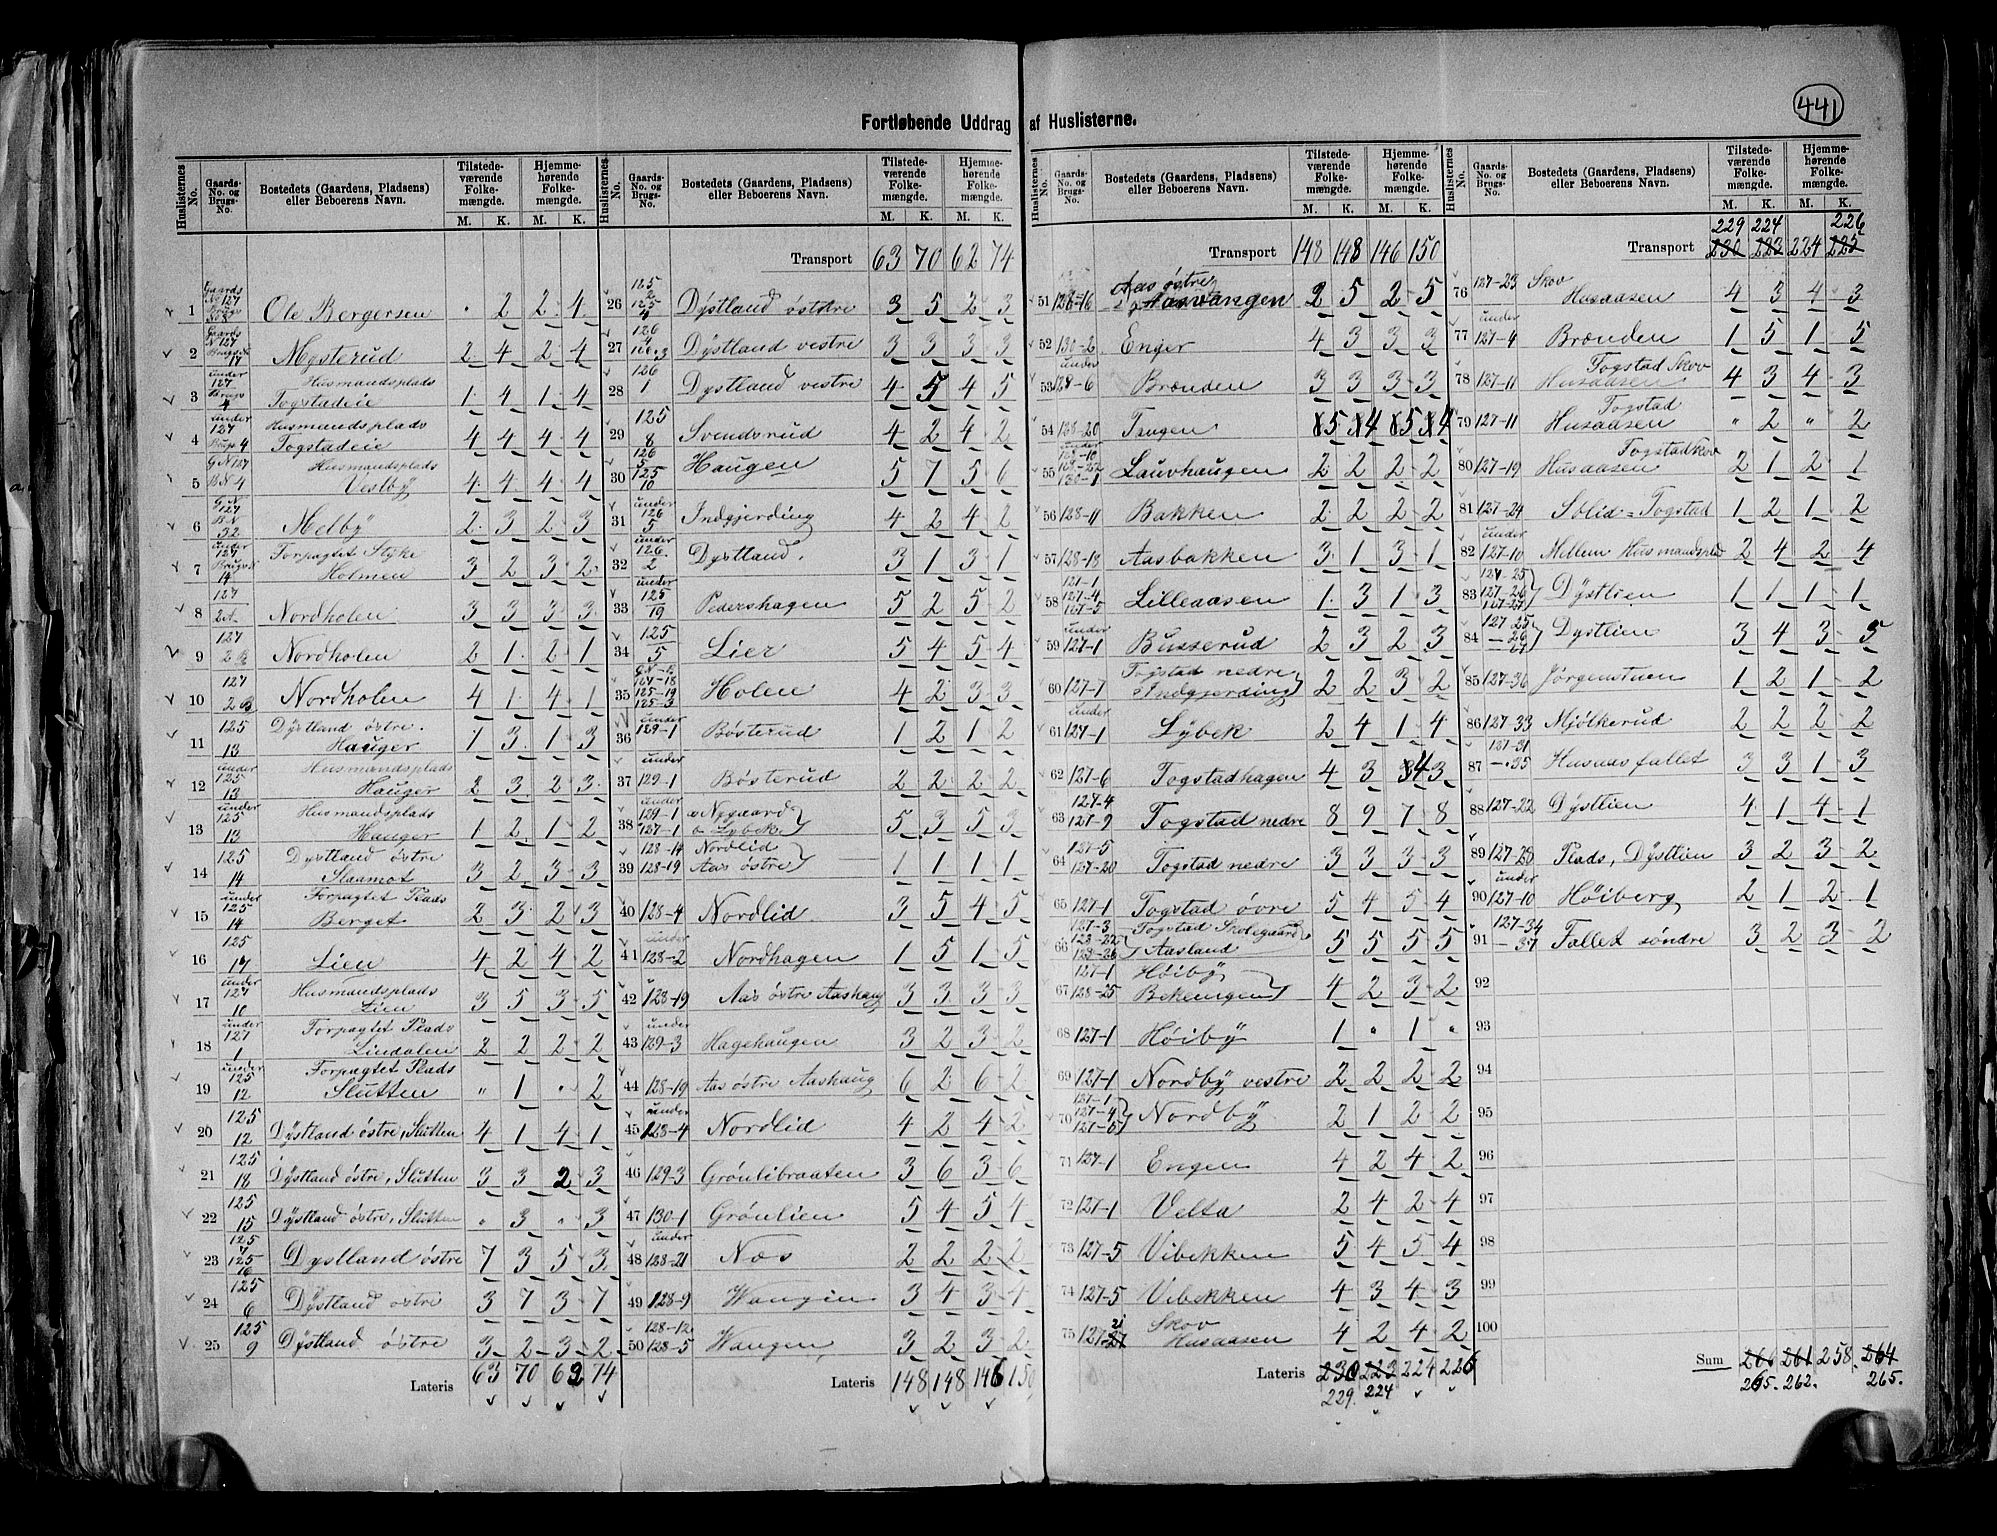 441
Fortløbende Uddrag af Huslisterne.
Huslisternes No. Gaards-No. og Brugs-No. Bostedets (Gaardens, Pladsens) eller Beboerens Navn. Tilstedeværende Folkemængde. M. K. Hjemmehørende Folkemængde. M. K.
1 Gaards No 127 Ole Bergersen . 2 2 4
2 Mysterud 2 4 2 4
3 under 127 Brugs 4 Husmandsplads Togstadeie 1 4 1 4
4 under 127 Brugs 4 Husmandsplads Togstadeie 4 4 4 4
5 G N 127 B N 4 Husmandsplads Vestby 4 4 4 4
6 G N 127 B N 32 Melby 2 3 2 3
7 under 127 14 Forpagtet Stÿke Holmen 3 2 3 2
8 127 2A Nordholen 3 3 3 3
9 127 2 Nordholen 2 1 2 1
10 127 2 Nordholen 4 1 4 1
11 125 13 Dÿstland østre Hauger 1 3 1 3
12 under 125 13 Husmandsplads Hauger 2 3 2 3
13 under 125 13 Husmandsplads Hauger 1 2 1 2
14 125 14 Dÿstland østre Slaamot 3 2 3 3
15 under 125 14 Forpagtet Plads Berget 2 3 2 3
16 125 17 Lien 4 2 4 2
17 under 127 10 Husmandsplads Lien 3 5 3 5
18 under 127 1 Forpagtet Plads Lindalen 2 2 2 2
19 under 125 12 Forpagtet Plads Slutten " 1 " 2
20 125 12 Dÿstland østre, Slutten 4 1 4 1
21 125 18 Dÿstland østre, Slutten 3 3 2 3
22 125 15 Dÿstland østre, Slutten " 3 " 3
23 125 7 125 16 Dystland østre 7 3 5 3
24 125 6 Dÿstland østre 3 7 3 7
25 125 9 Dÿstland østre 3 2 3 2
Lateris 63 70 62 74
Huslisternes No. Gaards-No. og Brugs-No. Bostedets (Gaardens, Pladsens) eller Beboerens Navn. Tilstedeværende Folkemængde. M. K. Hjemmehørende Folkemængde. M. K.
Transport 63 70 62 74
26 125 2 125 4 Dÿstland østre 3 5 2 3
27 126 4 126 3 Dÿstland vestre 3 3 3 3
28 126 1 Dystland vestre 4 5 4 5
29 125 8 Svendsrud 4 2 4 2
30 126 5 125 10 Haugen 5 7 5 6
31 under 126 5 Indgjerding 4 2 4 2
32 under 126 2 Dystland. 3 1 3 1
33 under 125 19 Pedershagen 5 2 5 2
34 125 5 Lier 5 4 5 4
35 127-18 125-19 125-3 Holen 4 2 3 3
36 under 129-1 Bøsterud 1 2 1 2
37 under 129-1 Bösterud 2 2 2 2
38 under 129-1 127-1 Nygaard Lybek 5 3 5 3
39 128-14 128-19 Nordlid Aas østre 1 1 1 1
40 128-4 Nordlid. 3 5 4 5
41 under 128-2 Nordhagen 1 5 1 5
42 128-19 Aas østre Aashaug 3 3 3 3
43 under 129-3 Hagehaugen 3 2 3 2
44 128-19 Aas østre Aashaug 6 2 6 2
45 under 128-4 Nordlid 4 2 4 2
46 129-3 Grönlibraaten 3 6 3 6
47 130-1 Grönlien 5 4 5 4
48 under 128-21 Næs 2 2 2 2
49 128-9 Wangen 3 4 3 4
50 128-12 128-5 Wangen 3 2 3 2
Lateris 148 148 146 150
Huslisternes No. Gaards-No. og Brugs-No. Bostedets (Gaardens, Pladsens) eller Beboerens Navn. Tilstedeværende Folkemængde. M. K. Hjemmehørende Folkemængde. M. K.
Transport 148 148 146 150
51 128-16 Aas østre Aasvangen 2 5 2 5
52 130-2 Enger 4 3 3 3
53 under 128-6 Brænden 3 3 3 3
54 128-20 Tangen 5 4 5 4
55 under 128-10 128-22 130-1 Lauvhaugen 2 2 2 2
56 128-11 Bakken 2 2 2 2
57 128-18 Aasbakken 3 1 3 1
58 121-1 127-4 127-5 Lilleaasen 1 3 1 3
59 under 127-1 Busserud 2 3 2 3
60 127-7 Togstad nedre Indgjerding 2 2 3 2
61 under 127-1 Lÿbek 2 4 1 4
62 127-6 Togstadhagen 4 3 4 3
63 127-4 127-9 Togstad nedre 8 9 7 8
64 127-5 127-20 Togstad nedre 3 3 3 3
65 127-1 Togstad övre 5 4 5 4
66 127-3 123-22 123-26 Togstad Skolegaard Aasland 5 5 5 5
67 127-1 128-25 Høiby Bekengen 4 2 3 2
68 127-1 Høiby 1 " 1 "
69 127-1 Nordbÿ vestre 2 2 2 2
70 127-1 127-4 127-5 Nordbÿ 2 1 2 2
71 127-1 Engen 4 2 4 2
72 127-1 Velta 2 4 2 4
73 127-5 Vibekken 5 4 5 4
74 127-5 Vibekken 4 3 4 3
75 127-21 Skov Husaasen 4 2 4 2
Lateris 230 223 224 226
229. 224
Huslisternes No. Gaards-No. og Brugs-No. Bostedets (Gaardens, Pladsens) eller Beboerens Navn. Tilstedeværende Folkemængde. M. K. Hjemmehørende Folkemængde. M. K.
229 224 226
Transport 230 223 224 225
76 127-23 Skov Husaasen 4 3 4 3
77 under 127-4 Brænden 1 5 1 5
78 127-11 Togstad Skov Husaasen 4 3 4 3
79 127-11 Togstad Husaasen " 2 " 2
80 127-19 Togstadskov Husaasen 2 1 2 1
81 127-24 Solid=Togstad 1 2 1 2
82 under 127-10 Mellem Husmandsplads 2 4 2 4
83 127-25 127-26 127-27 Dÿstlien 1 1 1 1
84 127-25 -26 -27 Dystlien 3 4 3 5
85 127-36 Jørgenstuen 1 2 1 2
86 127-33 Mjölkerud 2 2 2 2
87 127-31 -35 Husaasfallet 3 3 1 3
88 127-22 Dÿstlien 4 1 4 1
89 127-28 Plads, Dÿstlien 3 2 3 2
90 under 127-10 Høiberg 2 1 2 1
91 127-34 -37 Fallet söndre 3 2 3 2
92
93
94
95
96
97
98
99
100
Sum 266 261 258. 264
265. 262. 265.